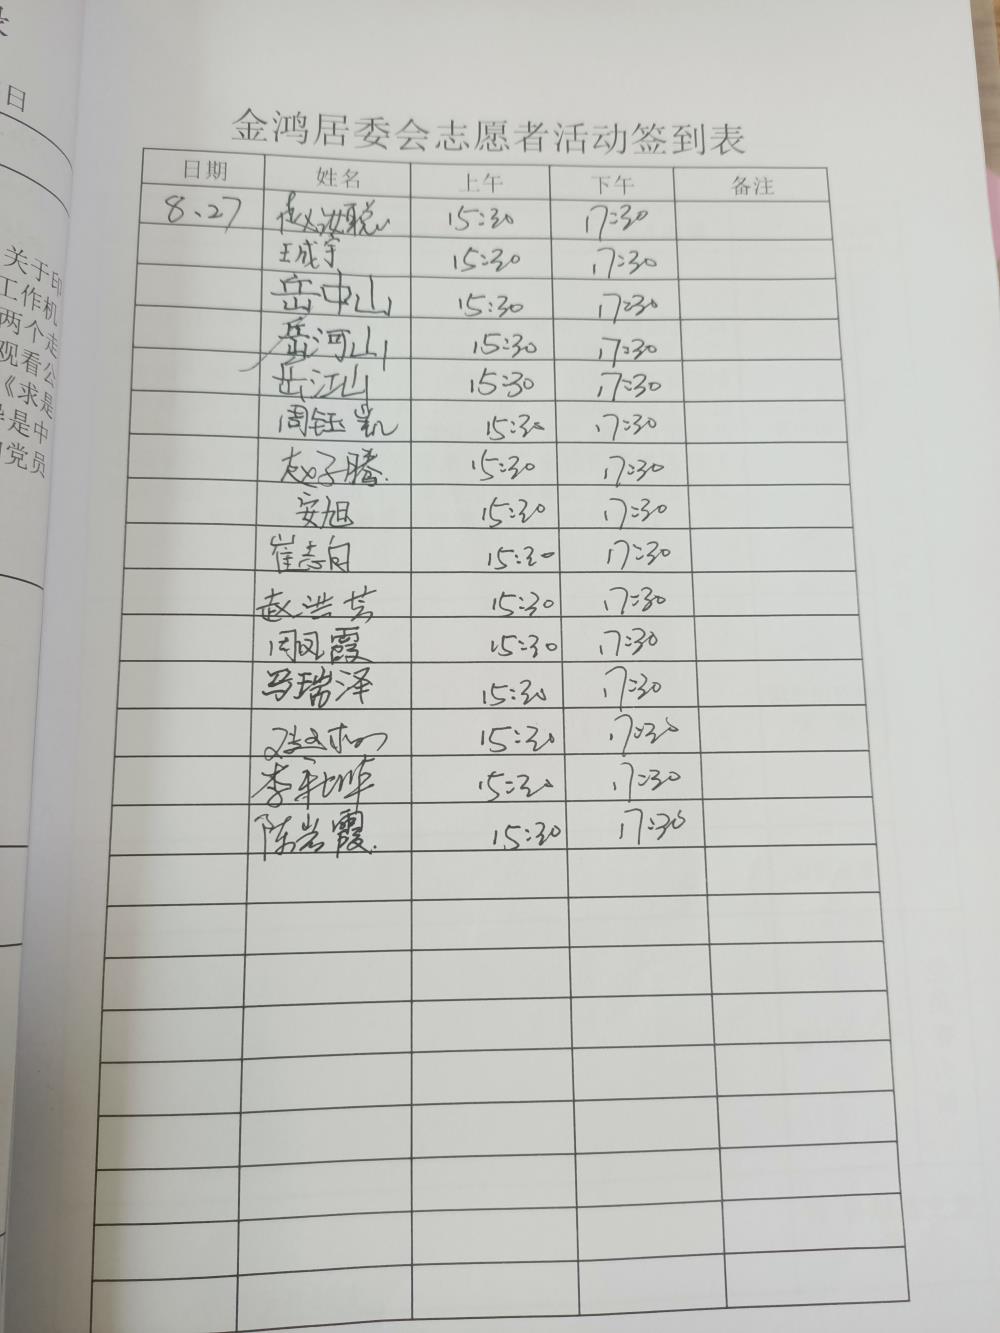 日
关于印
工作机
两个走
观看公
《求是
是中
党员
金鸿居委会志愿者活动签到表
日期 姓名 上午 下午 备注
8、27 赵汝聪 15:30 17:30
王成宇 15:30 17:30
岳中山 15:30 17:30
岳河山 15:30 17:30
岳江山 15:30 17:30
周钰凯 15:30 17:30
赵子腾 15:30 17:30
安旭 15:30 17:30
崔志向 15:30 17:30
赵洪芸 15:30 17:30
周凤霞 15:30 17:30
马瑞泽 15:30 17:30
15:30 17:30
李 15:30 17:30
陈岩霞 15:30 17:30